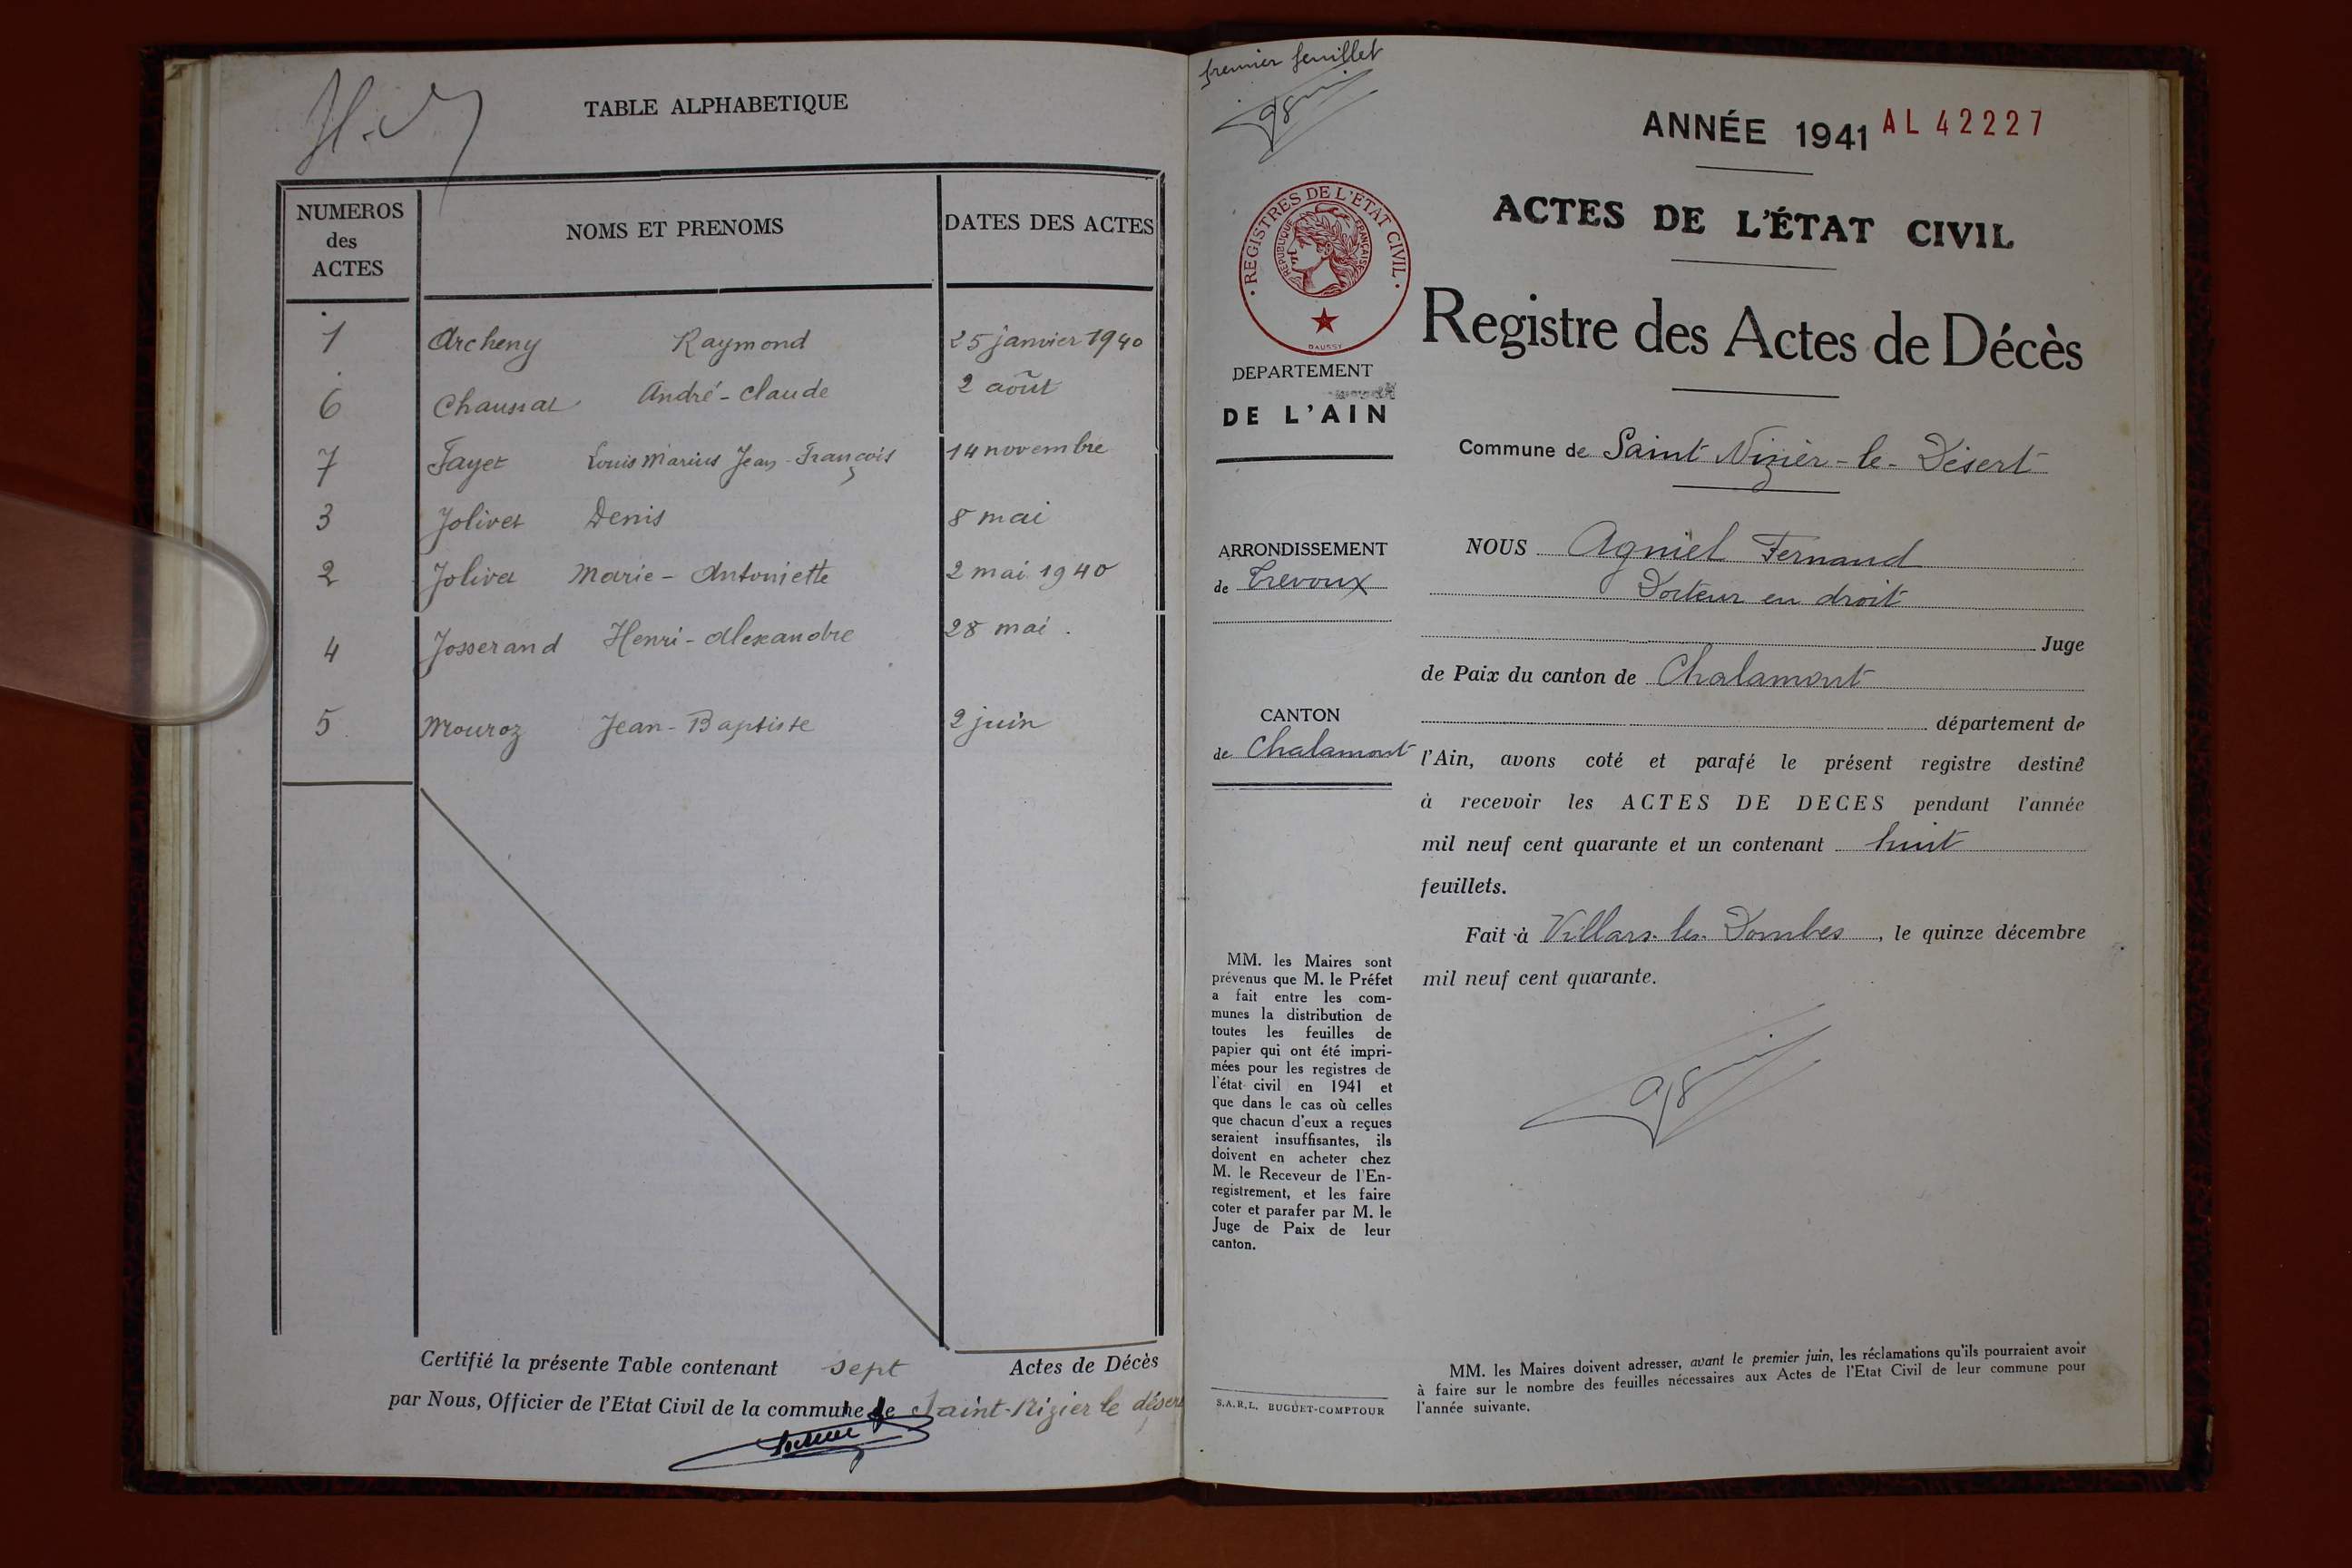 TABLE ALPHABETIQUE
NUMEROS
des
ACTES
NOMS ET PRENOMS
DATES DES ACTES
1 Archeny Raymond 25 janvier 1940
6 Chaussat André-Claude 2 août
7 Fayet Louis Marius Jean-François 14 novembre
3 Jolivet Denis 8 mai
2 Jolivet Marie-Antoniette 2 mai 1940
4 Josserand Henri-Alexandre 28 mai.
5 Mouroz Jean-Baptiste 2 juin
Certifié la présente Table contenant sept Actes de Décès
par Nous, Officier de l'Etat Civil de la commune de Saint-Nizier le désert
premier feuillet
REGISTRES DE L'ÉTAT CIVIL
RÉPUBLIQUE FRANÇAISE
DAUSSY
DEPARTEMENT
DE L'AIN
ARRONDISSEMENT
de Trevoux
CANTON
de Chalamont
MM. les Maires sont
prévenus que M. le Préfet
a fait entre les com-
munes la distribution de
toutes les feuilles de
papier qui ont été impri-
mées pour les registres de
l'état civil en 1941 et
que dans le cas où celles
que chacun d'eux a reçues
seraient insuffisantes, ils
doivent en acheter chez
M. le Receveur de l'En-
registrement, et les faire
coter et parafer par M. le
Juge de Paix de leur
canton.
S.A.R.L. BUGUET-COMPTOUR
ANNÉE 1941 AL 42227
ACTES DE L'ÉTAT CIVIL
Registre des Actes de Décès
Commune de Saint Nizier-le-Désert
NOUS Agniel Fernand
Docteur en droit
Juge
de Paix du canton de Chalamont
département de
l'Ain, avons coté et parafé le présent registre destiné
à recevoir les ACTES DE DECES pendant l'année
mil neuf cent quarante et un contenant huit
feuillets.
Fait à Villars-les-Dombes, le quinze décembre
mil neuf cent quarante.
MM. les Maires doivent adresser, avant le premier juin, les réclamations qu'ils pourraient avoir
à faire sur le nombre des feuilles nécessaires aux Actes de l'Etat Civil de leur commune pour
l'année suivante.